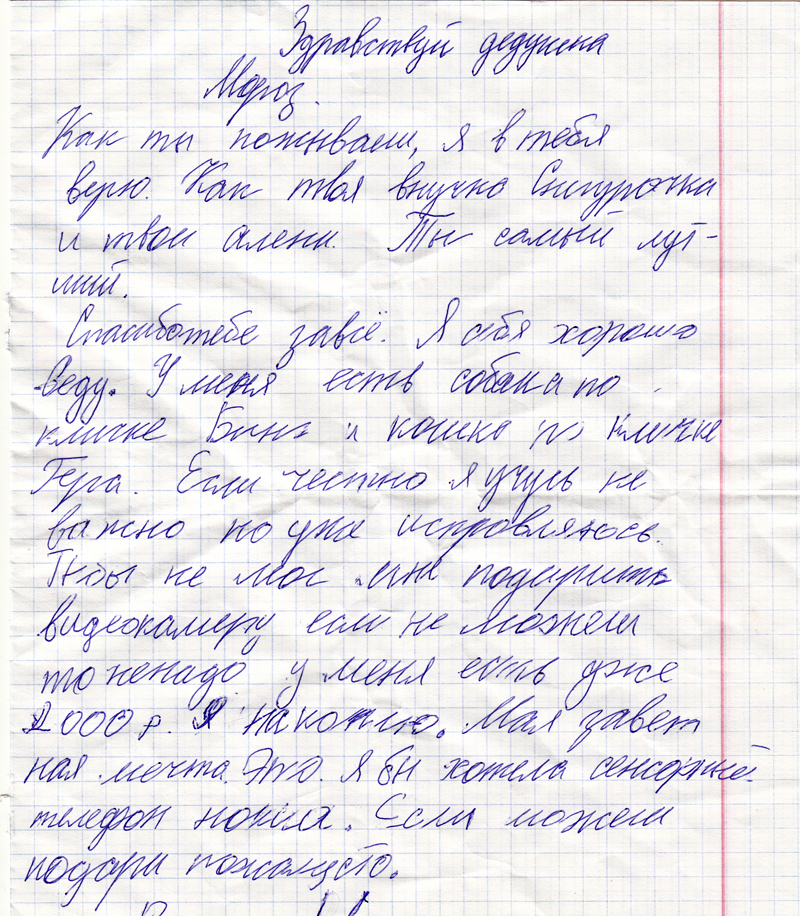 Здравствуй дедушка
Мороз.
Как ты пожываеш, я в тебя
верю. Как твоя внучка Снигурочка
и твои алени. Ты самый лут-
ший.
Спасиботебе завсё. Я себя хорошо
веду. У меня есть собака по
кличке Бинг и кошка по кличке
Гера. Если честно я учусь не
важно но уже исправляюсь.
Тыбы не мог мне подарить
видеокамеру если не можеш
то ненадо у меня есть уже
2000 р. Я накоплю. Моя завет
ная мечта. Это. Я бы хотела сенсорный
телефон нокия. Если можеш
подари пожалусто.